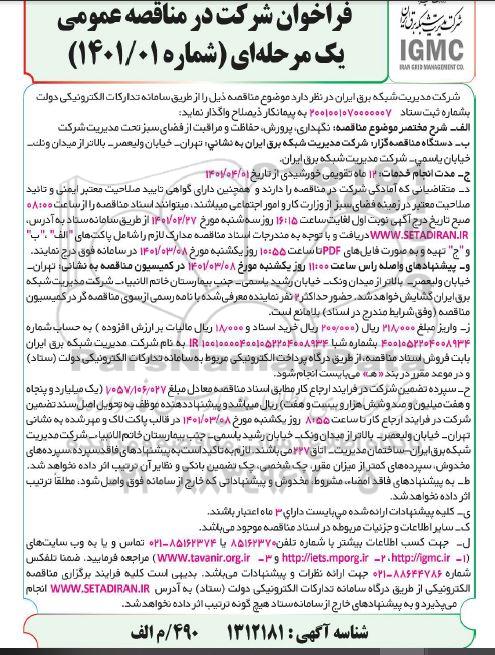 فراخوان شرکت در مناقصه عمومی
یک مرحله‌ای (شماره ۱۴۰۱/۰۱)
شرکت مدیریت شبکه برق ایران
IGMC
IRAN GRID MANAGEMENT CO.
شرکت مدیریت شبکه برق ایران در نظر دارد موضوع مناقصه ذیل را از طریق سامانه تدارکات الکترونیکی دولت
بشماره ثبت ستاد ۲۰۰۱۰۰۱۰۷۰۰۰۰۰۰۷ به پیمانکار ذیصلاح واگذار نماید:
الف_ شرح مختصر موضوع مناقصه: نگهداری، پرورش، حفاظت و مراقبت از فضای سبز تحت مدیریت شرکت
ب_ دستگاه مناقصه‌گزار: شرکت مدیریت شبکه برق ایران به نشانی: تهران_ خیابان ولیعصر_ بالاتر از میدان ونک_
خیابان یاسمی_ شرکت مدیریت شبکه برق ایران.
ج_ مدت انجام خدمات: ۱۲ ماه تقویمی خورشیدی از تاریخ ۱۴۰۱/۰۴/۰۱
د_ متقاضیانی که آمادگی شرکت در مناقصه را دارند و همچنین دارای گواهی تایید صلاحیت معتبر ایمنی و تائید
صلاحیت معتبر در زمینه فضای سبز از وزارت کار و امور اجتماعی میباشند، میتوانند اسناد مناقصه را از ساعت ۰۸:۰۰
صبح تاریخ درج آگهی نوبت اول لغایت ساعت ۱۶:۱۵ روز سه‌شنبه مورخ ۱۴۰۱/۰۲/۲۷ از طریق سامانه ستاد به آدرس
WWW.SETADIRAN.IR دریافت و با توجه به مندرجات اسناد مناقصه مدارک لازم را شامل پاکت‌های "الف"، "ب"
و "ج" تهیه و به صورت فایل‌های PDF تا ساعت ۱۰:۵۵ روز یکشنبه مورخ ۱۴۰۱/۰۳/۰۸ در سامانه فوق درج نمایند.
و_ پیشنهادهای واصله راس ساعت ۱۱:۰۰ روز یکشنبه مورخ ۱۴۰۱/۰۳/۰۸ در کمیسیون مناقصه به نشانی: تهران_
خیابان ولیعصر_ بالاتر از میدان ونک_ خیابان رشید یاسمی_ جنب بیمارستان خاتم الانبیاء_ شرکت مدیریت شبکه
برق ایران گشایش خواهد شد. حضور حداکثر ۲ نفر نماینده معرفی شده با نامه رسمی از سوی مناقصه گر در کمیسیون
مناقصه (وفق شرایط مندرج در اسناد) بلامانع است.
ز_ واریز مبلغ ۲۱۸/۰۰۰ ریال (۲۰۰/۰۰۰ ریال خرید اسناد و ۱۸/۰۰۰ ریال مالیات بر ارزش افزوده) به حساب شماره
۴۰۰۱۰۵۲۲۰۴۰۰۸۹۳۴ بشماره شبا IR
شرکت مدیریت شبکه برق ایران
بابت فروش اسناد مناقصه، از طریق درگاه پرداخت الکترونیکی مربوط به سامانه تدارکات الکترونیکی دولت (ستاد)
و در موعد مقرر در بند «هـ» می‌بایست انجام شود.
ح_ سپرده تضمین شرکت در فرایند ارجاع کار مطابق اسناد مناقصه معادل مبلغ ۱/۰۵۷/۱۰۶/۰۲۷ (یک میلیارد و پنجاه
و هفت میلیون و صد و شش هزار و بیست و هفت) ریال میباشد و پیشنهاددهنده موظف به تحویل اصل سند تضمین
شرکت در فرایند ارجاع کار تا ساعت ۸:۵۵ روز یکشنبه مورخ ۱۴۰۱/۰۳/۰۸ در قالب پاکت لاک و مهر شده به نشانی
تهران_ خیابان ولیعصر_ بالاتر از میدان ونک_ خیابان رشید یاسمی_ جنب بیمارستان خاتم الانبیاء_ شرکت مدیریت
شبکه برق ایران_ ساختمان مدیریت_ اتاق ۲۲۷ می‌باشند. لازم به تاکید است به پیشنهادهای فاقد سپرده، سپرده‌های
مخدوش، سپرده‌های کمتر از میزان مقرر، چک شخصی، چک تضمین بانکی و نظایر آن ترتیب اثر داده نخواهد شد.
ط_ به پیشنهادهای فاقد امضاء، مشروط، مخدوش و پیشنهاداتی که خارج از سامانه فوق واصل شود، مطلقا ترتیب
اثر داده نخواهد شد.
ی_ کلیه پیشنهادات ارائه شده می‌بایست دارای ۳ ماه اعتبار باشند.
ک_ سایر اطلاعات و جزئیات مربوطه در اسناد مناقصه موجود می‌باشد.
ل_ جهت کسب اطلاعات بیشتر با شماره تلفن ۸۵۱۶۲۳۷۰ یا ۰۲۱-۸۵۱۶۲۳۷۴ تماس و یا به وب سایت‌های
(۱- http://igmc.ir ، ۲- http://iets.mporg.ir و ۳- www.tavanir.org.ir) مراجعه فرمایید. ضمنا تلفکس
شماره ۰۲۱-۸۸۶۴۴۷۸۶ جهت ارائه نظرات و پیشنهادات می‌باشد. بدیهی است کلیه فرایند برگزاری مناقصه
الکترونیکی از طریق درگاه سامانه تدارکات الکترونیکی دولت (ستاد) به آدرس WWW.SETADIRAN.IR انجام
می‌پذیرد و به پیشنهادهای خارج از سامانه ستاد هیچ گونه ترتیب اثر داده نخواهد شد.
شناسه آگهی: ۱۳۱۲۱۸۱ ۴۹۰/م الف